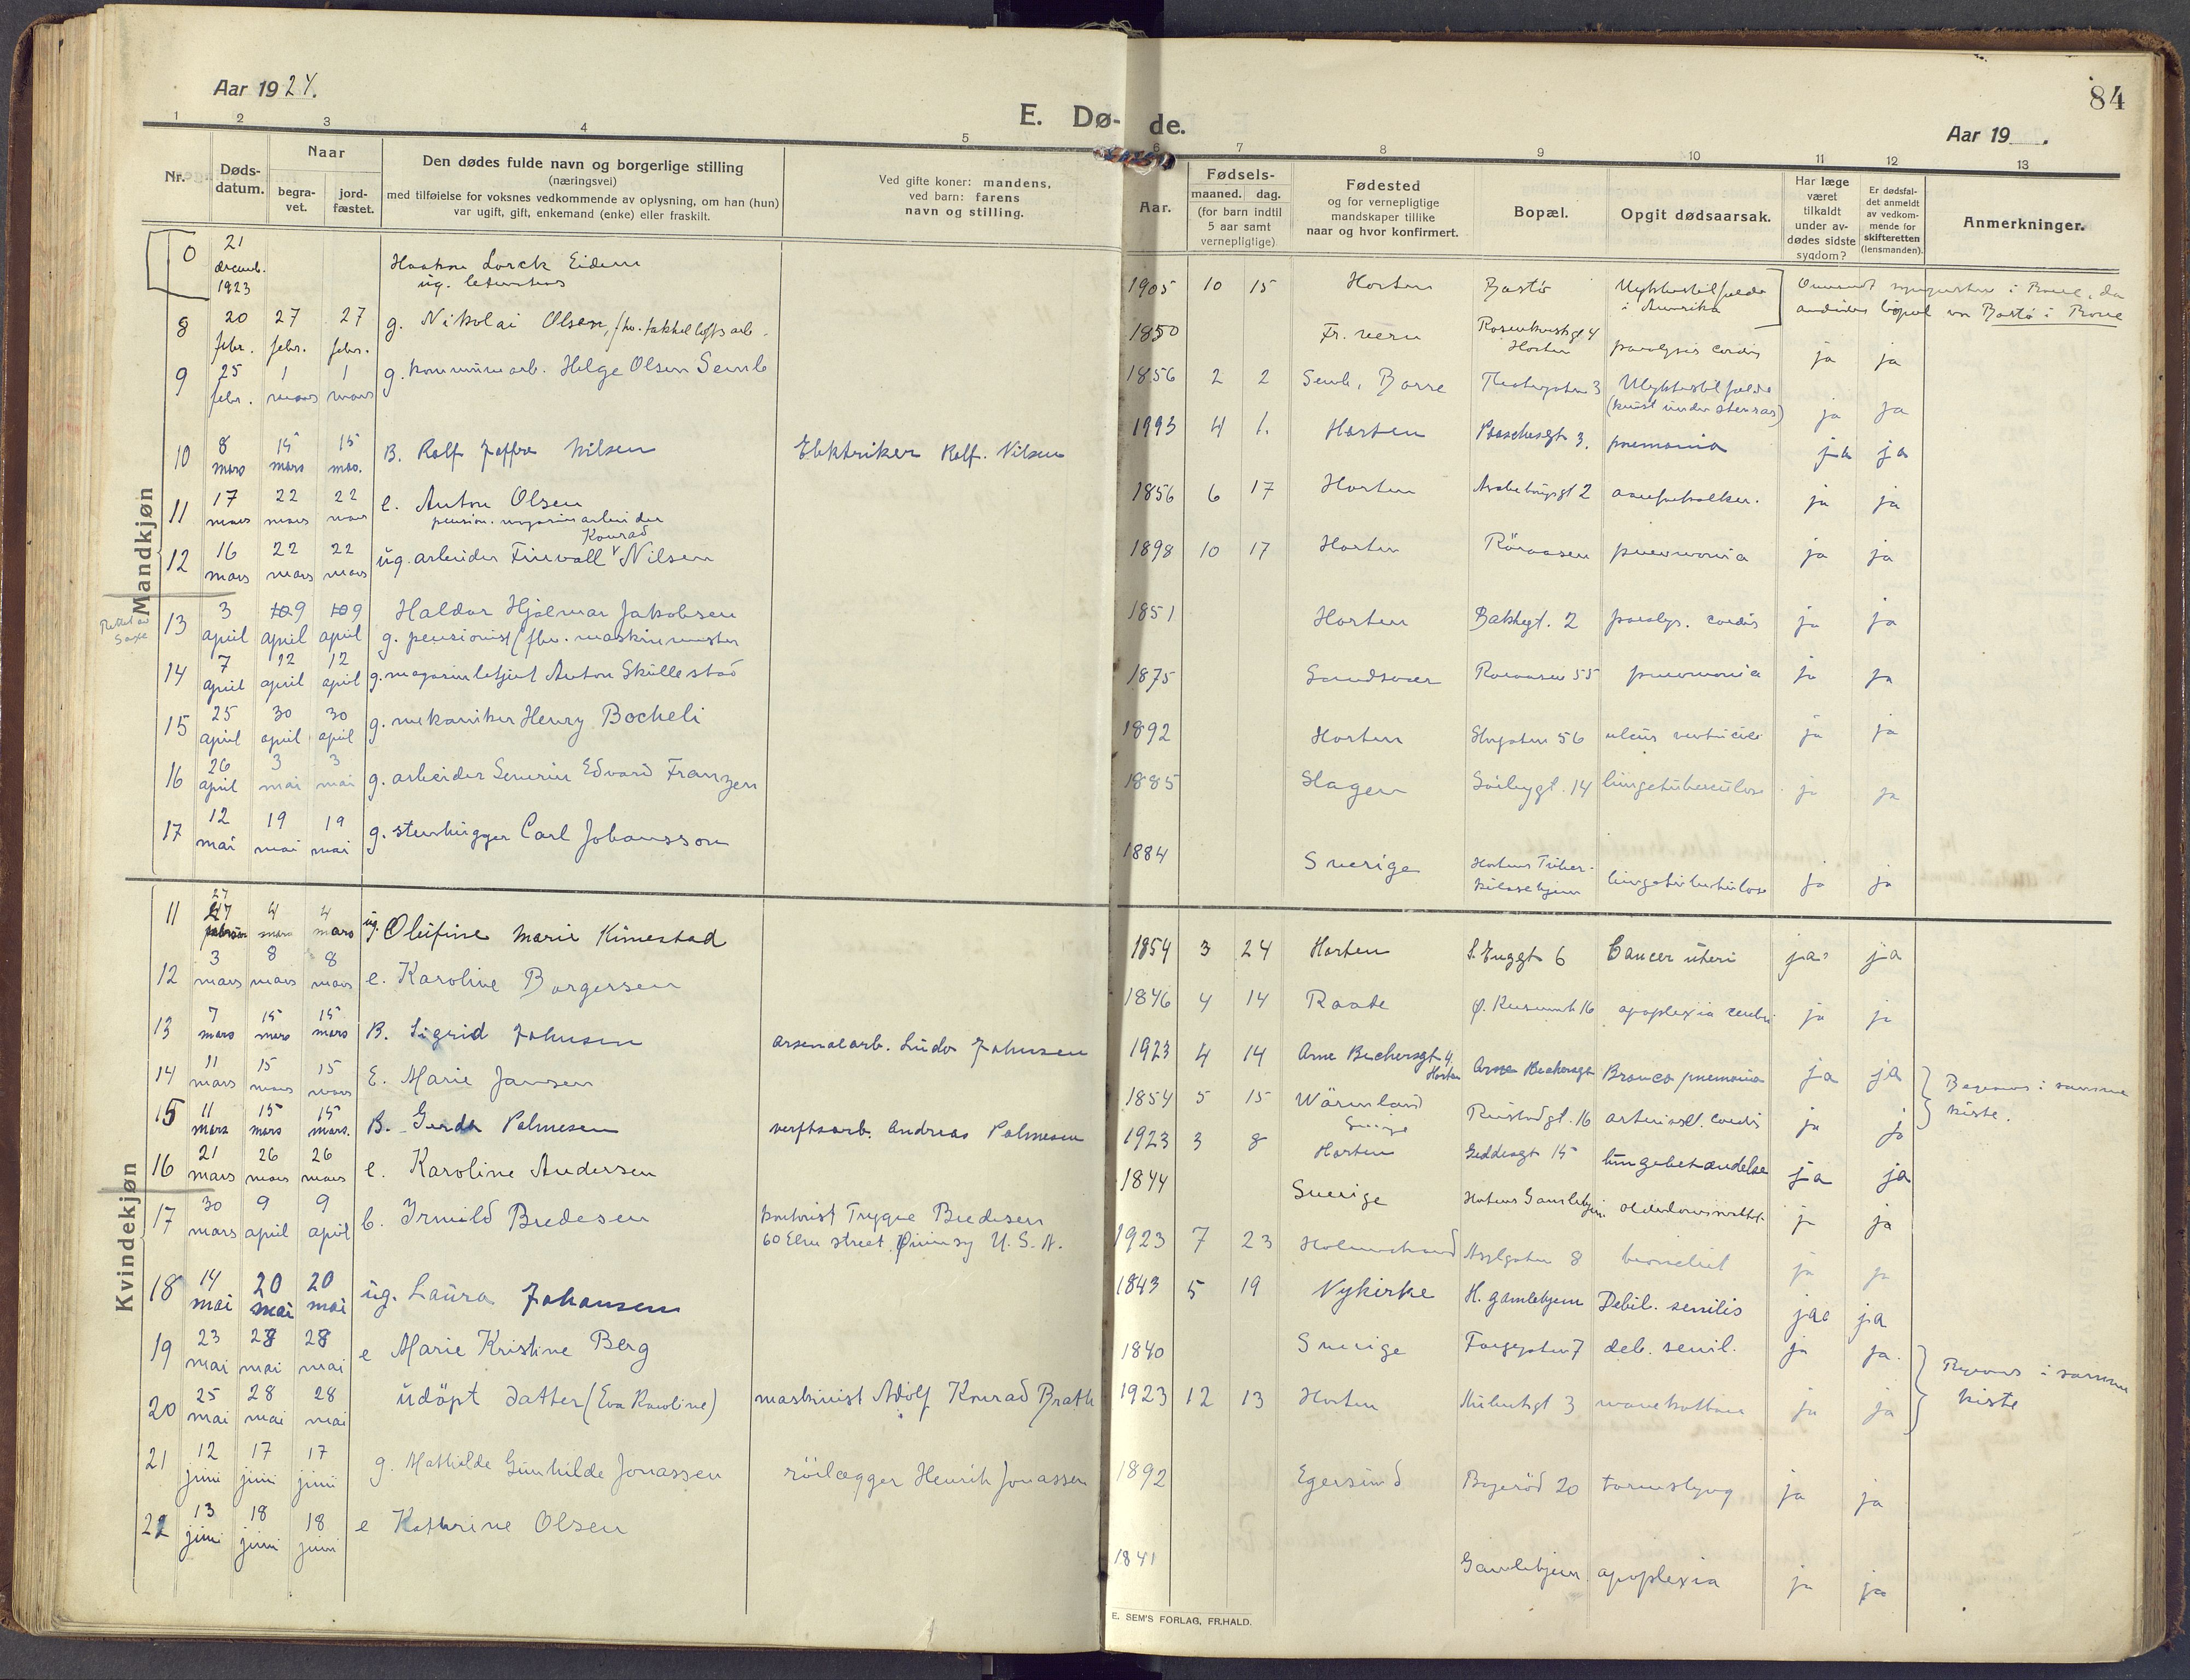 Aar 1924.
E. Dø-de.
84
Aar 19 .
1 2 3 4 5 6 7 8 9 10 11 12 13
Nr.
Døds-
datum.
Naar
begra-
vet.
jord-
fæstet.
Den dødes fulde navn og borgerlige stilling
(næringsvei)
med tilføielse for voksnes vedkommende av oplysning, om han (hun)
var ugift, gift, enkemand (enke) eller fraskilt.
Ved gifte koner: mandens,
ved barn: farens
navn og stilling.
Aar.
Fødsels-
maaned. dag.
(for barn indtil
5 aar samt
vernepligtige)
Fødested
og for vernepligtige
mandskaper tillike
naar og hvor konfirmert.
Bopæl.
Opgit dødsaarsak.
Har læge
været
tilkaldt
under av-
dødes sidste
sygdom?
Er dødsfal-
det anmeldt
av vedkom-
mende for
skifteretten
(lensmanden).
Anmerkninger.
Mandkjøn
0 21 decemb. 1923 Haakon Lorck Eidem 1905 10 15 Horten Bastö Ulykkestilfælde
ug. i Amerika
8 20 febr. 27 febr. 27 febr. g. Nikolai Olsen, 1850 Fr. vern Horten paralysis cordis ja ja
9 25 febr. 1 mars 1 mars g. kommunearb. Helge Olsen Semb 1856 2 2 Semb, Borre Theatergaten 3 Ulykkestilfælde ja ja
(knust under stenras)
10 8 mars 15 mars 15 mars. B. Rolf Joffre Nilsen Elektriker Rolf. Nilsen 1993 4 1. Horten 3. pnemonia ja ja
11 17 mars 22 mars 22 mars e. Anton Olsen 1856 6 17 Horten 2 ja ja
pension. arbeider
12 16 mars 22 mars 22 mars ug. arbeider Finvall Konrad Nilsen 1898 10 17 Horten Röraasen pneumonia ja ja
13 3 april 10 9 april 10 9 april Haldor Hjalmar Jakobsen 1851 Horten Bakkegt. 2 paralys. cordis ja ja
g. pensionist (fhv. maskinmester
14 7 april 12 april 12 april g. magasinbetjent Anton Skullestad 1875 Sandsvær Roraasen 55 pneumonia ja ja
15 25 april 30 april 30 april g. mekaniker Henry Bocheli 1892 Horten Storgaten 56 ulcus ventriculi ja ja
16 26 april 3 mai 3 mai g. arbeider Severin Edvard Franzen 1885 Slagen 14 lungetuberculose ja ja
17 12 mai 19 mai 19 mai g. stenhugger Carl Johansson 1884 Sverige Hortens Tuber-
kulosehjem lungetuberkulose ja ja
Kvindekjøn
11 27 februar 4 mars 4 mars ug. Olefine Marie Kimestad 1854 3 24 Horten 6 Cancer uteri ja ja
12 3 mars 8 mars 8 mars e. Karoline Borgersen 1846 4 14 Raade 16 apoplexia cerebri ja ja
13 7 mars 15 mars 15 mars B. Sigrid Johnsen arsenalarb. Ludv Johnsen 1923 4 14 Arne Bechersgt 4. Horten Arne Bechersgt Bronco pnemonia ja ja
14 11 mars 15 mars 15 mars E. Marie Jansen 1854 5 15 Wärmland Sverige Rustadgt. 16 cordis ja ja
Begraves i samme
kiste.
15 11 mars 15 mars 15 mars. B. Gerda Palmesen verftsarb. Andreas Palmesen 1923 3 8 Horten Geddesgt 15 lungebetændelse ja ja
16 21 mars 26 mars 26 mars e. Karoline Andersen 1844 Sverige Hortens Gamlehjem ja ja
17 30 mars 9 april 9 april b. Irmild Bredesen kontorist Trygve Bredesen 1923 7 23 Holmestrand Asylgaten 8 ja ja
60 Elm street, U.S.A.
18 14 mai 20 mai 20 mai ug. Laura Johansen 1843 5 19 Nykirke H. gamlehjem Debil. senilis ja ja
19 23 mai 28 mai 28 mai e Marie Kristine Berg 1840 Sverige Fargegaten 7 deb. senil. ja ja.
20 25 mai 28 mai 28 mai udöpt datter (Eva Karoline) maskinist Adolf Konrad Brath 1923 12 13 Horten 3 ja ja
Begraves i samme
kiste
21 12 juni 17 juni 17 juni g. Mathilde Gunhilde Jonassen rörlægger Henrik Jonassen 1892 Egersund Bogeröd 20 ja ja
22 13 juni 18 juni 18 juni e Kathrine Olsen 1841 Gamlehjem apoplexia ja ja
E. SEM'S FORLAG, FR.HALD.